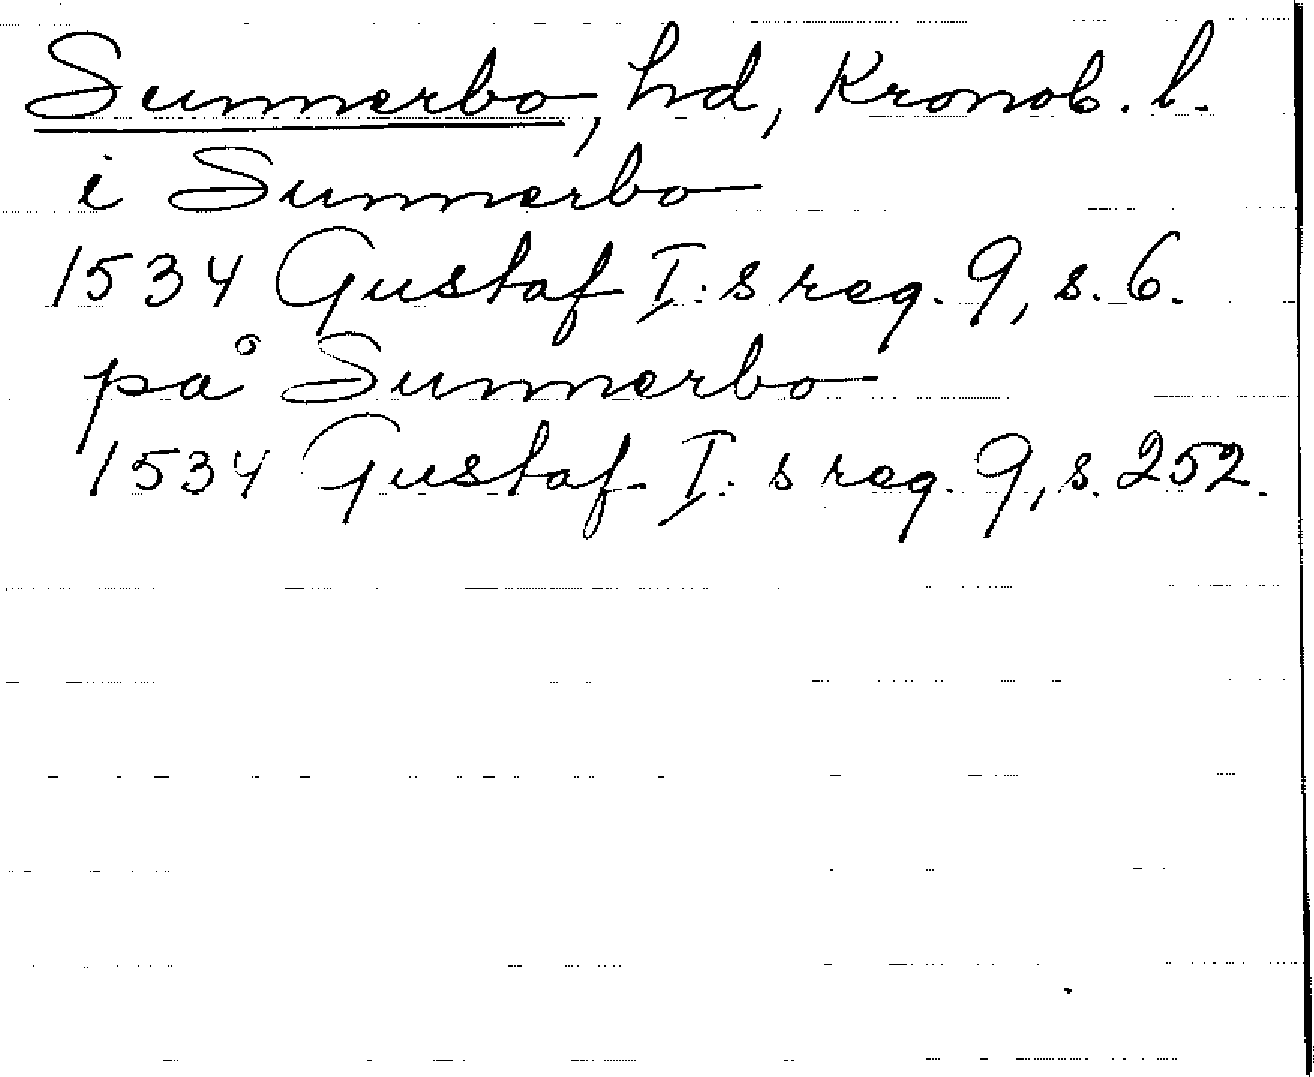 Sunnerbo, hd, Kronob. l.
i Sunnerbo
1534 Gustaf I:s reg. 9, s. 6.
på Sunnerbo
1534 Gustaf I:s reg. 9, s. 252.